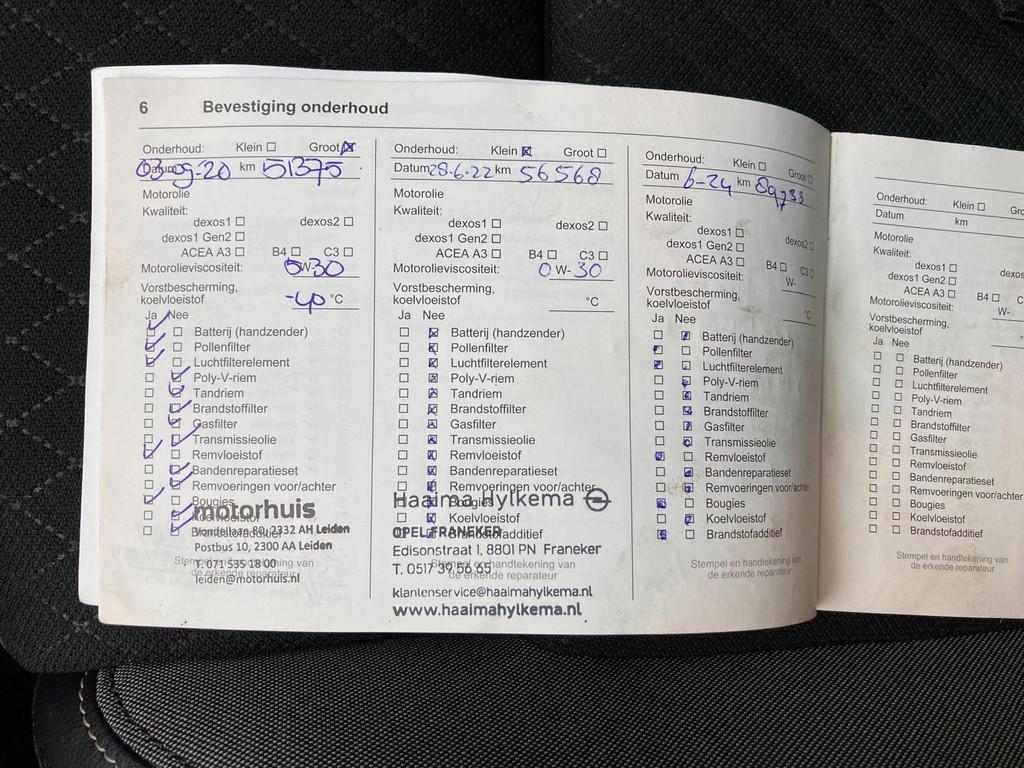 6 Bevestiging onderhoud
Onderhoud: Klein ☐ Groot ☒
Datum 03-09-20 km 51375
Motorolie
Kwaliteit:
dexos1 ☐ dexos2 ☐
dexos1 Gen2 ☐
ACEA A3 ☐ B4 ☐ C3 ☐
Motorolieviscositeit: 0W-30
Vorstbescherming,
koelvloeistof -40 °C
Ja Nee
Batterij (handzender)
Pollenfilter
Luchtfilterelement
Poly-V-riem
Tandriem
Brandstoffilter
Gasfilter
Transmissieolie
Remvloeistof
Bandenreparatieset
Remvoeringen voor/achter
Bougies
Koelvloeistof
Brandstofadditief
Stempel en handtekening van
de erkende reparateur
motorhuis
Vondellaan 80, 2332 AH Leiden
Postbus 10, 2300 AA Leiden
T. 071 535 18 00
leiden@motorhuis.nl
Onderhoud: Klein ☒ Groot ☐
Datum 28-6-22 km 56568
Motorolie
Kwaliteit:
dexos1 ☐ dexos2 ☐
dexos1 Gen2 ☐
ACEA A3 ☐ B4 ☐ C3 ☐
Motorolieviscositeit: 0 W- 30
Vorstbescherming,
koelvloeistof °C
Ja Nee
Batterij (handzender)
Pollenfilter
Luchtfilterelement
Poly-V-riem
Tandriem
Brandstoffilter
Gasfilter
Transmissieolie
Remvloeistof
Bandenreparatieset
Remvoeringen voor/achter
Bougies
Koelvloeistof
Brandstofadditief
Stempel en handtekening van
de erkende reparateur
Haaima Hylkema
OPEL FRANEKER
Edisonstraat 1, 8801 PN Franeker
T. 0517 39 56 65
klantenservice@haaimahylkema.nl
www.haaimahylkema.nl
Onderhoud: Klein ☐ Groot ☐
Datum 6-24 km 89738
Motorolie
Kwaliteit:
dexos1 ☐ dexos2 ☐
dexos1 Gen2 ☐
ACEA A3 ☐ B4 ☐ C3 ☐
Motorolieviscositeit: W-
Vorstbescherming,
koelvloeistof °C
Ja Nee
Batterij (handzender)
Pollenfilter
Luchtfilterelement
Poly-V-riem
Tandriem
Brandstoffilter
Gasfilter
Transmissieolie
Remvloeistof
Bandenreparatieset
Remvoeringen voor/achter
Bougies
Koelvloeistof
Brandstofadditief
Stempel en handtekening van
de erkende reparateur
Onderhoud: Klein ☐
Datum km
Motorolie
Kwaliteit:
dexos1 ☐
dexos1 Gen2 ☐
ACEA A3 ☐ B4 ☐
Motorolieviscositeit: W-
Vorstbescherming,
koelvloeistof
Ja Nee
Batterij (handzender)
Pollenfilter
Luchtfilterelement
Poly-V-riem
Tandriem
Brandstoffilter
Gasfilter
Transmissieolie
Remvloeistof
Bandenreparatieset
Remvoeringen voor/achter
Bougies
Koelvloeistof
Brandstofadditief
Stempel en handtekening van
de erkende reparateur